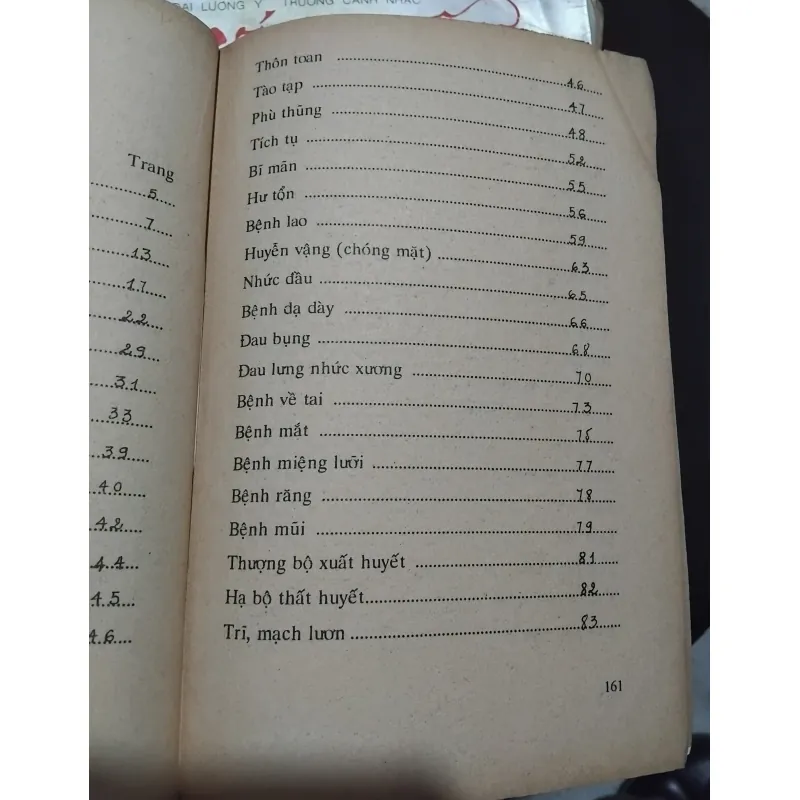 ĐẠI LƯƠNG Y TRƯƠNG CẢNH NHẠC
Trang
5
7
13
17
22
29
31
33
39
40
42
44
45
46
Thôn toan 46
Tào tạp 47
Phù thũng 48
Tích tụ 52
Bĩ mãn 55
Hư tổn 56
Bệnh lao 59
Huyễn vậng (chóng mặt) 63
Nhức đầu 65
Bệnh dạ dày 66
Đau bụng 68
Đau lưng nhức xương 70
Bệnh về tai 73
Bệnh mắt 75
Bệnh miệng lưỡi 77
Bệnh răng 78
Bệnh mũi 79
Thượng bộ xuất huyết 81
Hạ bộ thất huyết 82
Trĩ, mạch lươn 83
161